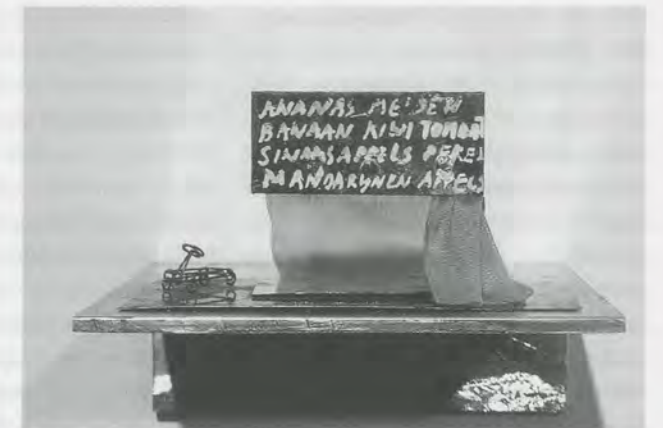 ANANAS MEISEN
BANAAN KIWI TOMAAT
SINAASAPPELS PEREN
MANDARYNEN APPELS